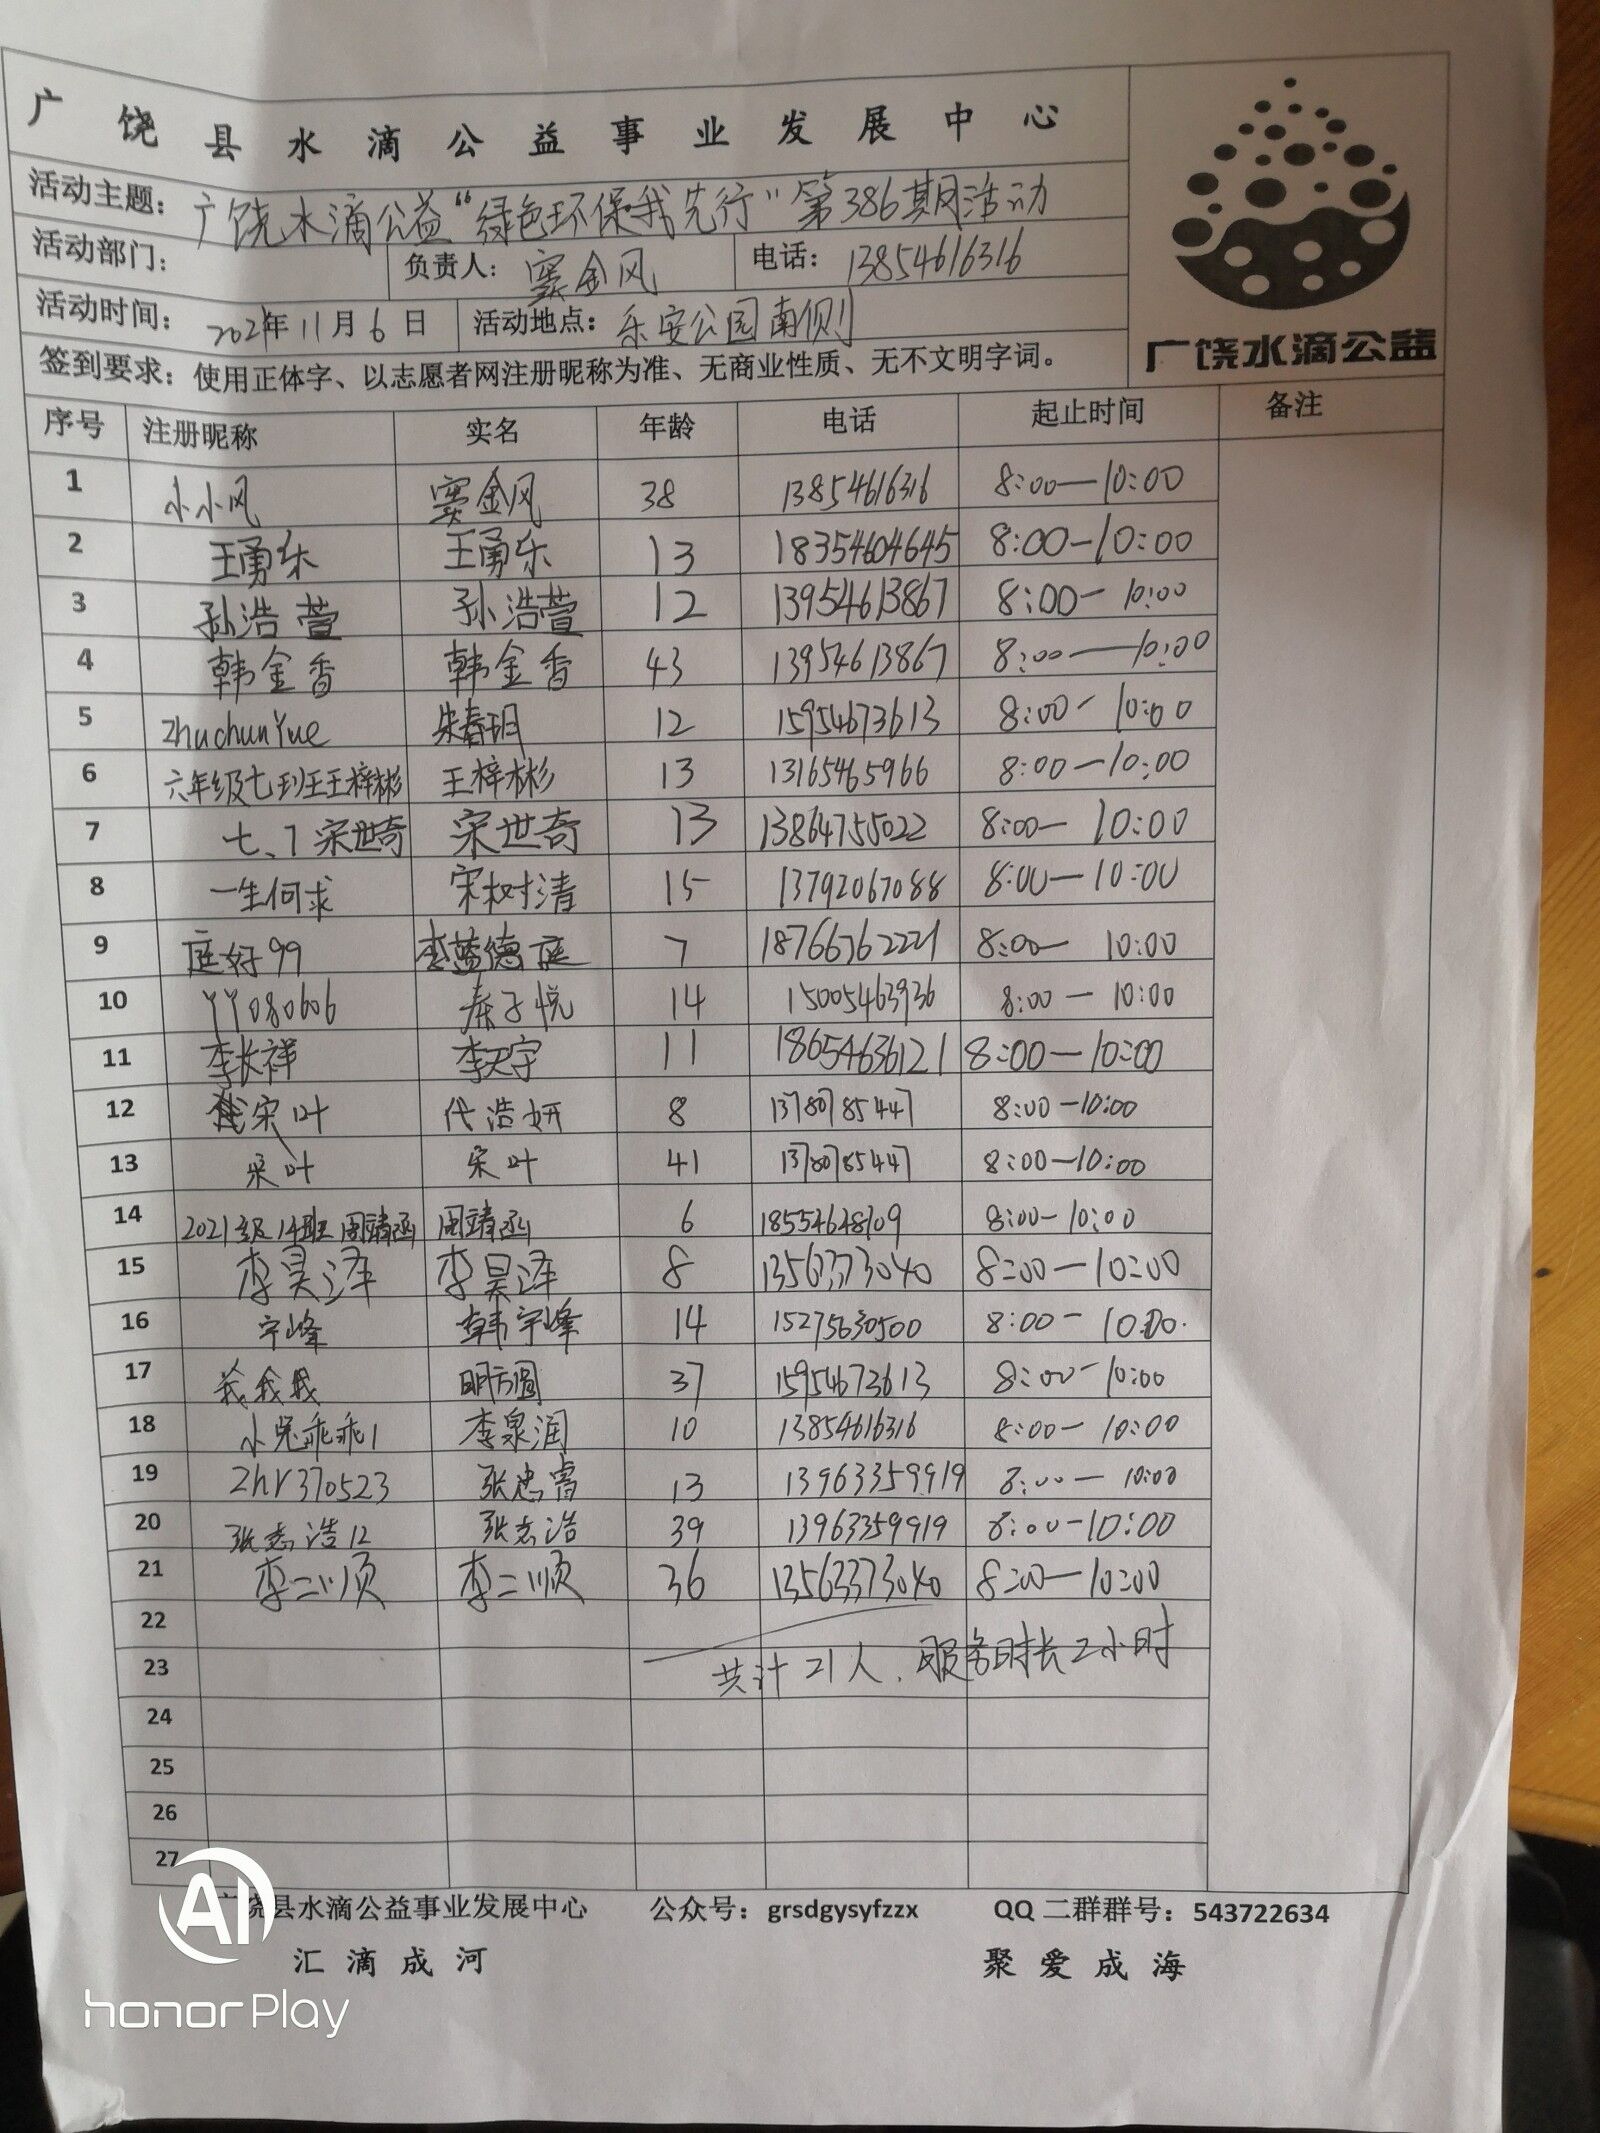 广饶县水滴公益事业发展中心
活动主题：广饶水滴公益“绿色环保我先行”第386期活动
活动部门： 负责人：窦金风 电话：13854616316
活动时间：2021年11月6日 活动地点：乐安公园南侧
签到要求：使用正体字、以志愿者网注册昵称为准、无商业性质、无不文明字词。
广饶水滴公益
序号 注册昵称 实名 年龄 电话 起止时间 备注
1 小小风 窦金风 38 13854616316 8:00—10:00
2 王勇乐 王勇乐 13 18354604645 8:00-10:00
3 孙浩萱 孙浩萱 12 13954613867 8:00-10:00
4 韩金香 韩金香 43 13954613867 8:00—10:00
5 zhuchunYue 朱春玥 12 15954673613 8:00-10:00
6 六年级七班王梓彬 王梓彬 13 13165465966 8:00-10:00
7 七、7宋世奇 宋世奇 13 13864755022 8:00-10:00
8 一生何求 宋树清 15 13792067088 8:00-10:00
9 庭好99 李蓝德庭 7 18766762221 8:00-10:00
10 YY080606 秦子悦 14 15005463936 8:00-10:00
11 李长祥 李天宇 11 18654636121 8:00-10:00
12 宋叶 代浩妍 8 13780785447 8:00-10:00
13 宋叶 宋叶 41 13780785447 8:00-10:00
14 2021级14班周靖函 周靖函 6 18554648709 8:00-10:00
15 李昊泽 李昊泽 8 13563373040 8:00-10:00
16 宇峰 韩宇峰 14 15275630500 8:00-10:00.
17 我我我 明方圆 37 15954673613 8:00-10:00
18 小兔乖乖1 李泉润 10 13854616316 8:00-10:00
19 zhr370523 张忠睿 13 13963359919 8:00-10:00
20 张志浩12 张志浩 39 13963359919 8:00-10:00
21 李二顺 李二顺 36 13563373040 8:00-10:00
22
23 共计21人，服务时长2小时
24
25
26
27
广饶县水滴公益事业发展中心 公众号：grsdgysyfzzx QQ二群群号：543722634
汇滴成河 聚爱成海
AI
honor Play